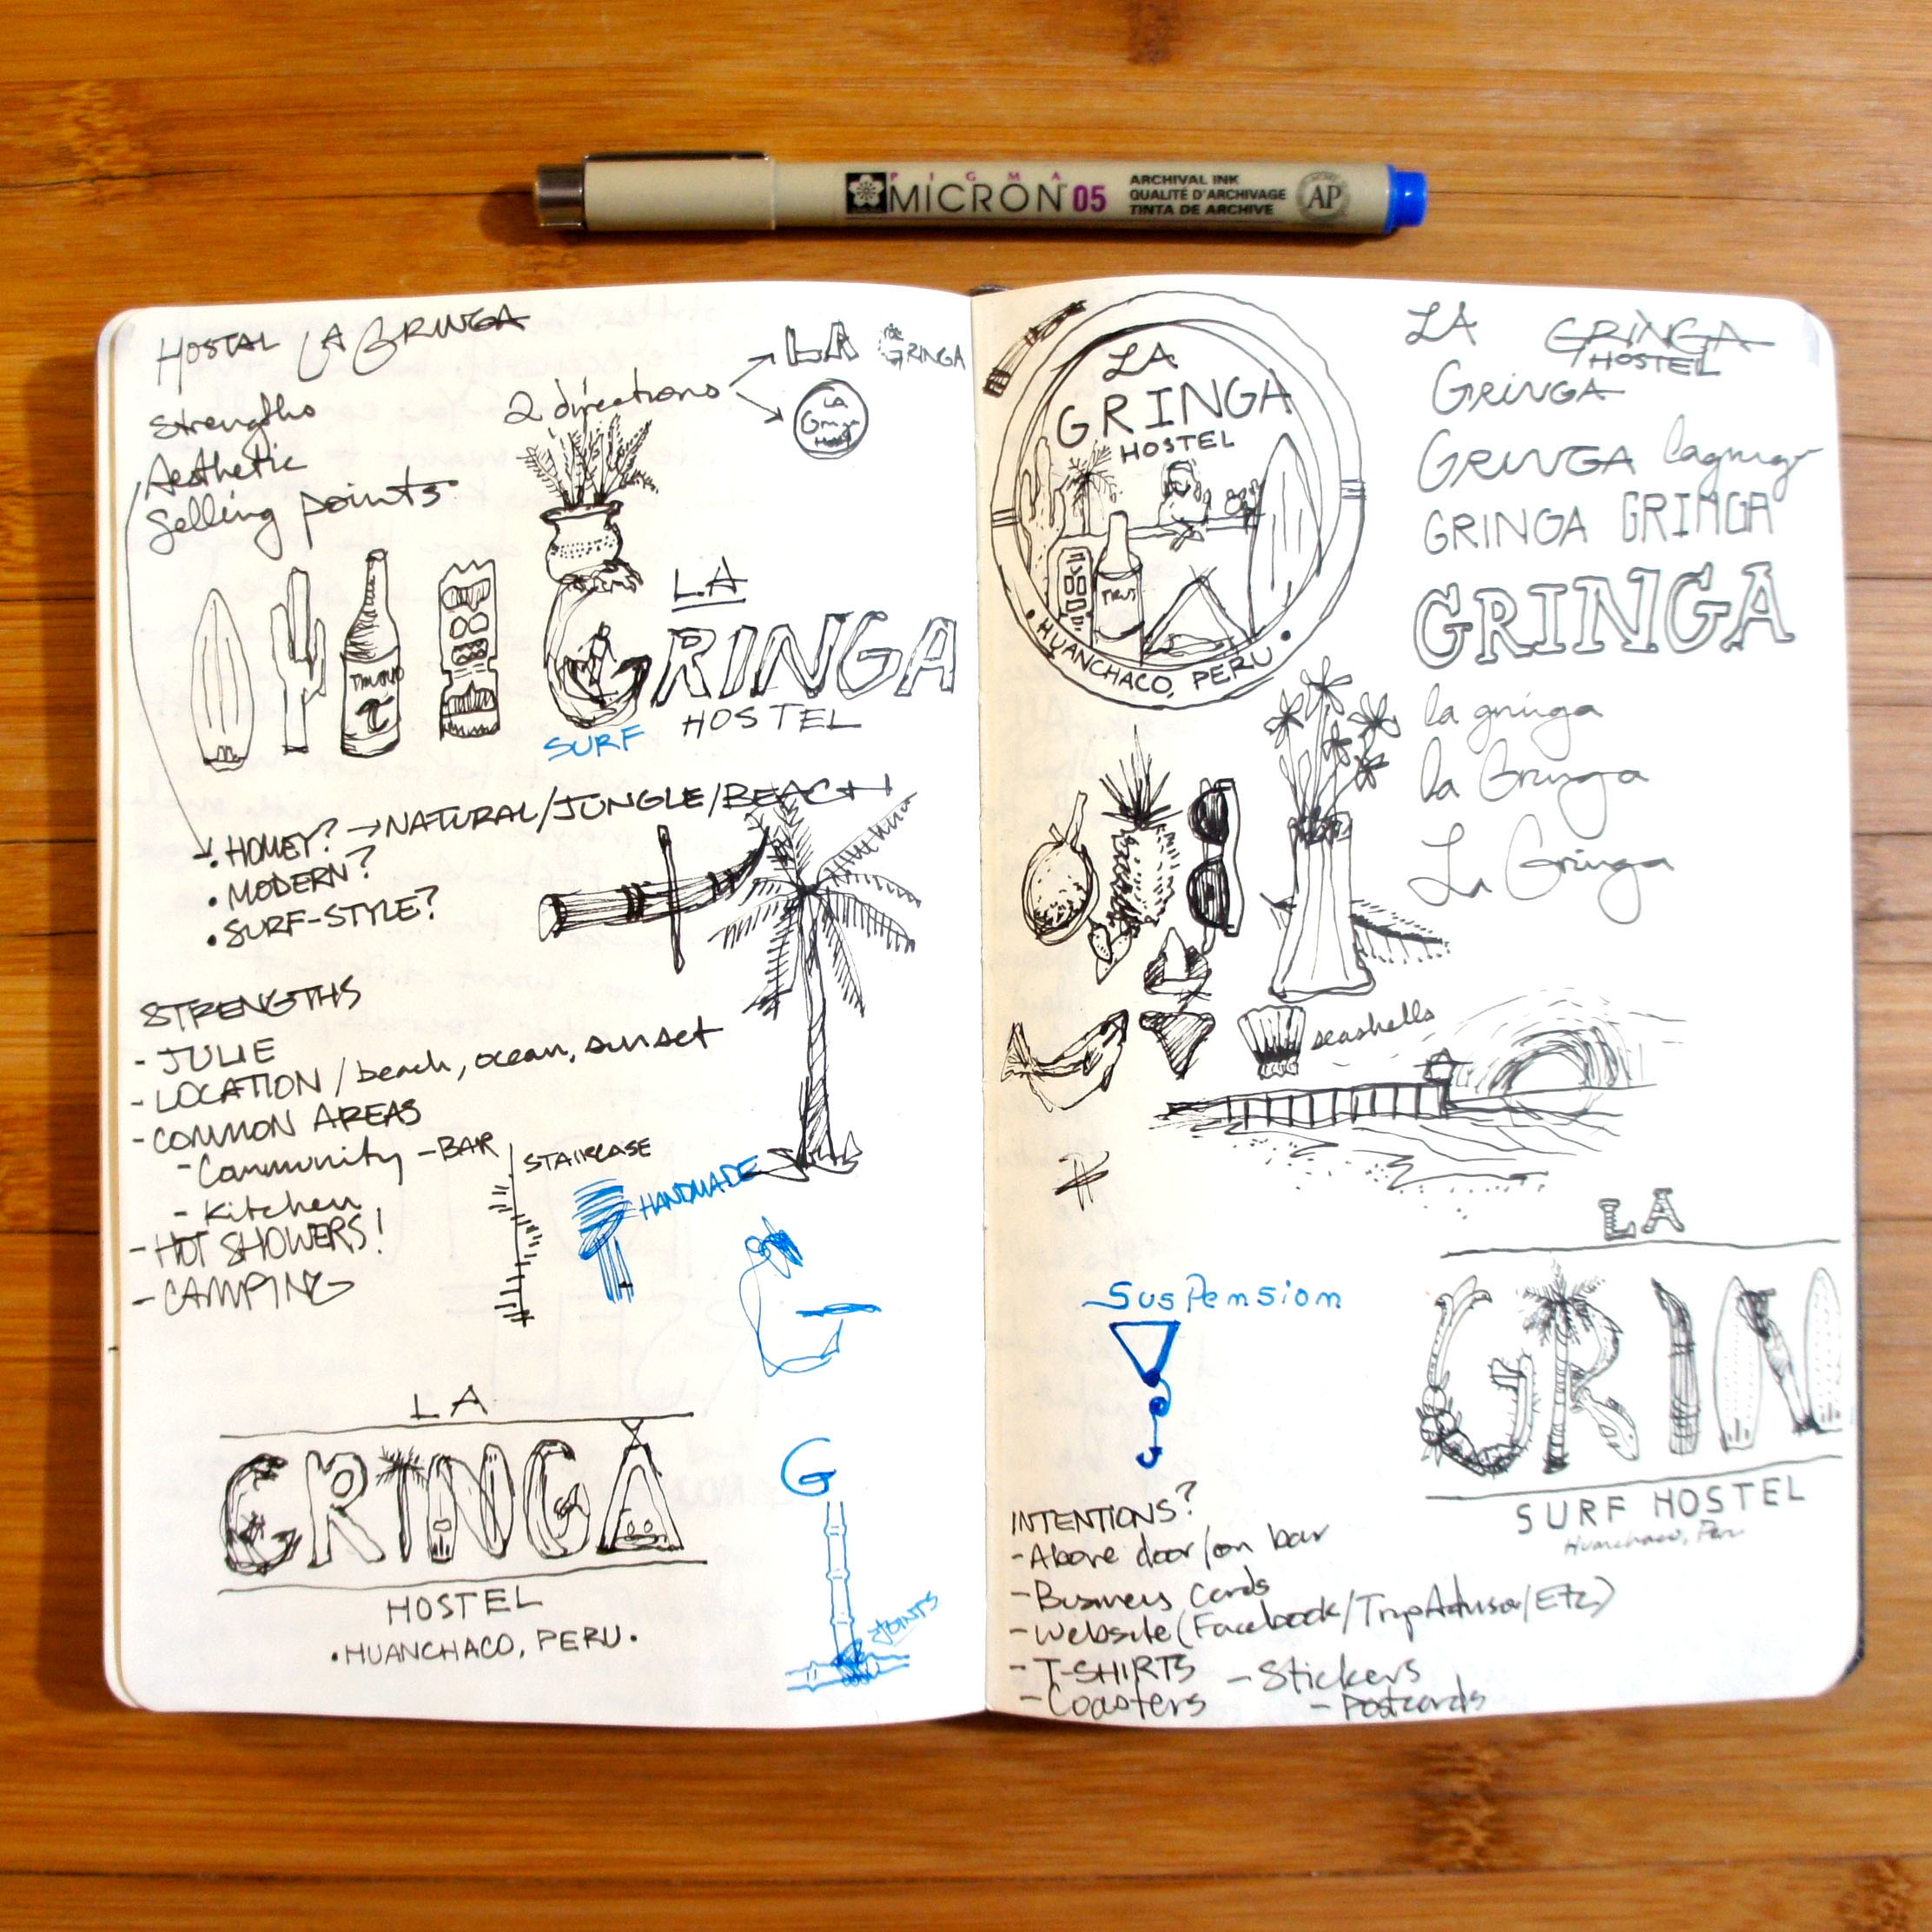 PIGMA
MICRON 05
ARCHIVAL INK
QUALITÉ D'ARCHIVAGE
TINTA DE ARCHIVE
AP
HOSTAL LA GRINGA
Strengths
Aesthetic
Selling points
2 directions
LA
GRINGA
LA
Gringa
LA
GRINGA
HOSTEL
SURF
• HOMEY? → NATURAL/JUNGLE/BEACH
• MODERN?
• SURF-STYLE?
STRENGTHS
- JULIE
- LOCATION / beach, ocean, sunset
- COMMON AREAS
- Community - BAR
- Kitchen
- HOT SHOWERS!
- CAMPING
STAIRCASE
HANDMADE
LA
GRINGA
HOSTEL
• HUANCHACO, PERU •
G
JOINTS
LA
GRINGA
HOSTEL
• HUANCHACO, PERU •
LA GRINGA
HOSTEL
GRINGA
GRINGA lagringa
GRINGA GRINGA
GRINGA
la gringa
la Gringa
La Gringa
seashells
LA
GRIN
SURF HOSTEL
Huanchaco, Peru
Suspension
INTENTIONS?
- Above door/on bar
- Business Cards
- Website (Facebook/TripAdvisor/Etc)
- T-SHIRTS - Stickers
- Coasters - Postcards